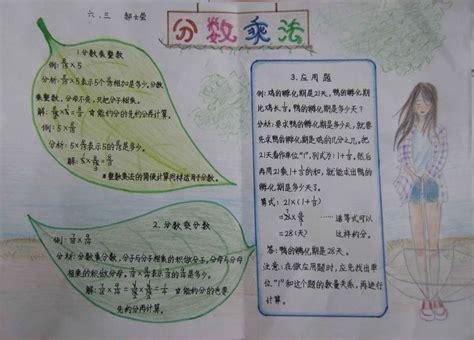 六、三
分数乘法
1.分数乘整数
例:
×5
分析:
×5表示5个
相加是多少.分数
乘整数,分母不变,只把分子相乘。
解:
能约分的先约分再计算。
例:5×
分析:5×
表示5的
是多少。
解:5×
*整数乘法的简便计算同样适用于分数。
2.分数乘分数
例:
分析:分数乘分数,分子与分子相乘的积做分子,分母与分母
相乘的积做分母。
表示
的
是多少。
解:
能约分的也要
先约分再计算。
3.应用题
例:鸡的孵化期是21天,鸭的孵化期
比鸡长
。鸭的孵化期是多少天?
分析:要求鸭的孵化期是多少天,就要
先求鸭的孵化期是鸡的几分之几。把
21天看作单位"1",列式为:1+
,然后
再用21乘1+
的和,就能求出鸭的
孵化期是多少天了。
算式:21×(1+
)
递等式可以
=28(天)
这样约分。
答:鸭的孵化期是28天。
注意:在做应用题时,应先找出单
位"1"和这个题的数量关系,再进行
计算。